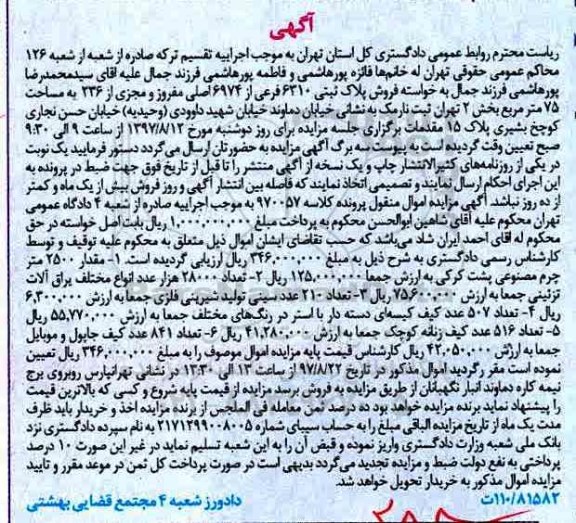 آگهی
ریاست محترم روابط عمومی دادگستری کل استان تهران به موجب اجراییه تقسیم ترکه صادره از شعبه از شعبه ۱۲۶
محاکم عمومی حقوقی تهران له خانم‌ها فائزه پورهاشمی و فاطمه پورهاشمی فرزند جمال علیه آقای سیدمحمدرضا
پورهاشمی فرزند جمال به خواسته فروش پلاک ثبتی ۶۳۱۰ فرعی از ۶۹۷۴ اصلی مفروز و مجزی از ۲۳۶ به مساحت
۷۵ متر مربع بخش ۲ تهران ثبت نارمک به نشانی خیابان دماوند خیابان شهید داوودی (وحیدیه) خیابان حسن نجاری
کوچج بشیری پلاک ۱۵ مقدمات برگزاری جلسه مزایده برای روز دوشنبه مورخ ۱۳۹۷/۸/۱۲ از ساعت ۹ الی ۹:۳۰
صبح تعیین وقت گردیده است به پیوست سه برگ آگهی مزایده به حضورتان ارسال می‌گردد دستور فرمایید یک نوبت
در یکی از روزنامه‌های کثیرالانتشار چاپ و یک نسخه از آگهی منتشر را تا قبل از تاریخ فوق جهت ضبط در پرونده به
این اجرای احکام ارسال نمایند و تصمیمی اتخاذ نمایند که فاصله بین انتشار آگهی و روز فروش بیش از یک ماه و کمتر
از ده روز نباشد. آگهی مزایده اموال منقول پرونده کلاسه ۹۷۰۰۵۷ به موجب اجراییه صادره از شعبه ۴ دادگاه عمومی
تهران محکوم علیه آقای شاهین ابوالحسن محکوم به پرداخت مبلغ ۱,۰۰۰,۰۰۰,۰۰۰ ریال بابت اصل خواسته در حق
محکوم له آقای احمد ایران شاد می‌باشد که حسب تقاضای ایشان اموال ذیل متعلق به محکوم علیه توقیف و توسط
کارشناس رسمی دادگستری به شرح ذیل به مبلغ ۳۴۶,۰۰۰,۰۰۰ ریال ارزیابی گردیده است. ۱- مقدار ۲۵۰۰ متر
چرم مصنوعی پشت کرکی به ارزش جمعا ۱۲۵,۰۰۰,۰۰۰ ریال ۲- تعداد ۲۸۰۰۰ هزار عدد انواع مختلف یراق آلات
تزئینی جمعا به ارزش ۷۵,۶۰۰,۰۰۰ ریال ۳- تعداد ۲۱۰ عدد سینی تولید شیرینی فلزی جمعا به ارزش ۶,۳۰۰,۰۰۰
ریال ۴- تعداد ۵۰۷ عدد کیف کیسه‌ای دسته دار با آستر در رنگ‌های مختلف جمعا به ارزش ۵۵,۷۷۰,۰۰۰ ریال
۵- تعداد ۵۱۶ عدد کیف زنانه کوچک جمعا به ارزش ۴۱,۲۸۰,۰۰۰ ریال ۶- تعداد ۸۴۱ عدد کیف جاپول و موبایل
جمعا به ارزش ۴۲,۰۵۰,۰۰۰ ریال کارشناس قیمت پایه مزایده اموال موصوف را به مبلغ ۳۴۶,۰۰۰,۰۰۰ ریال تعیین
نموده است مقرر گردید اموال مذکور در تاریخ ۹۷/۸/۲۲ از ساعت ۱۳ الی ۱۳:۳۰ در نشانی تهرانپارس روبروی برج
نیمه کاره دماوند انبار نگهبانان از طریق مزایده به فروش برسد مزایده از قیمت پایه شروع و کسی که بالاترین قیمت
را پیشنهاد نماید برنده مزایده خواهد بود ده درصد ثمن معامله فی المجلس از برنده مزایده اخذ و خریدار باید ظرف
مدت یک ماه از تاریخ مزایده الباقی مبلغ را به حساب سیبای شماره ۲۱۷۱۲۹۹۰۰۸۰۰۵ به نام سپرده دادگستری نزد
بانک ملی شعبه وزارت دادگستری واریز نموده و قبض آن را به این شعبه تسلیم نماید در غیر این صورت ۱۰ درصد
پرداختی به نفع دولت ضبط و مزایده تجدید می‌گردد بدیهی است در صورت پرداخت کل ثمن در موعد مقرر و تایید
مزایده اموال مذکور به خریدار تحویل خواهد شد.
۱۱۰/۸۱۵۸۲ت
دادورز شعبه ۴ مجتمع قضایی بهشتی